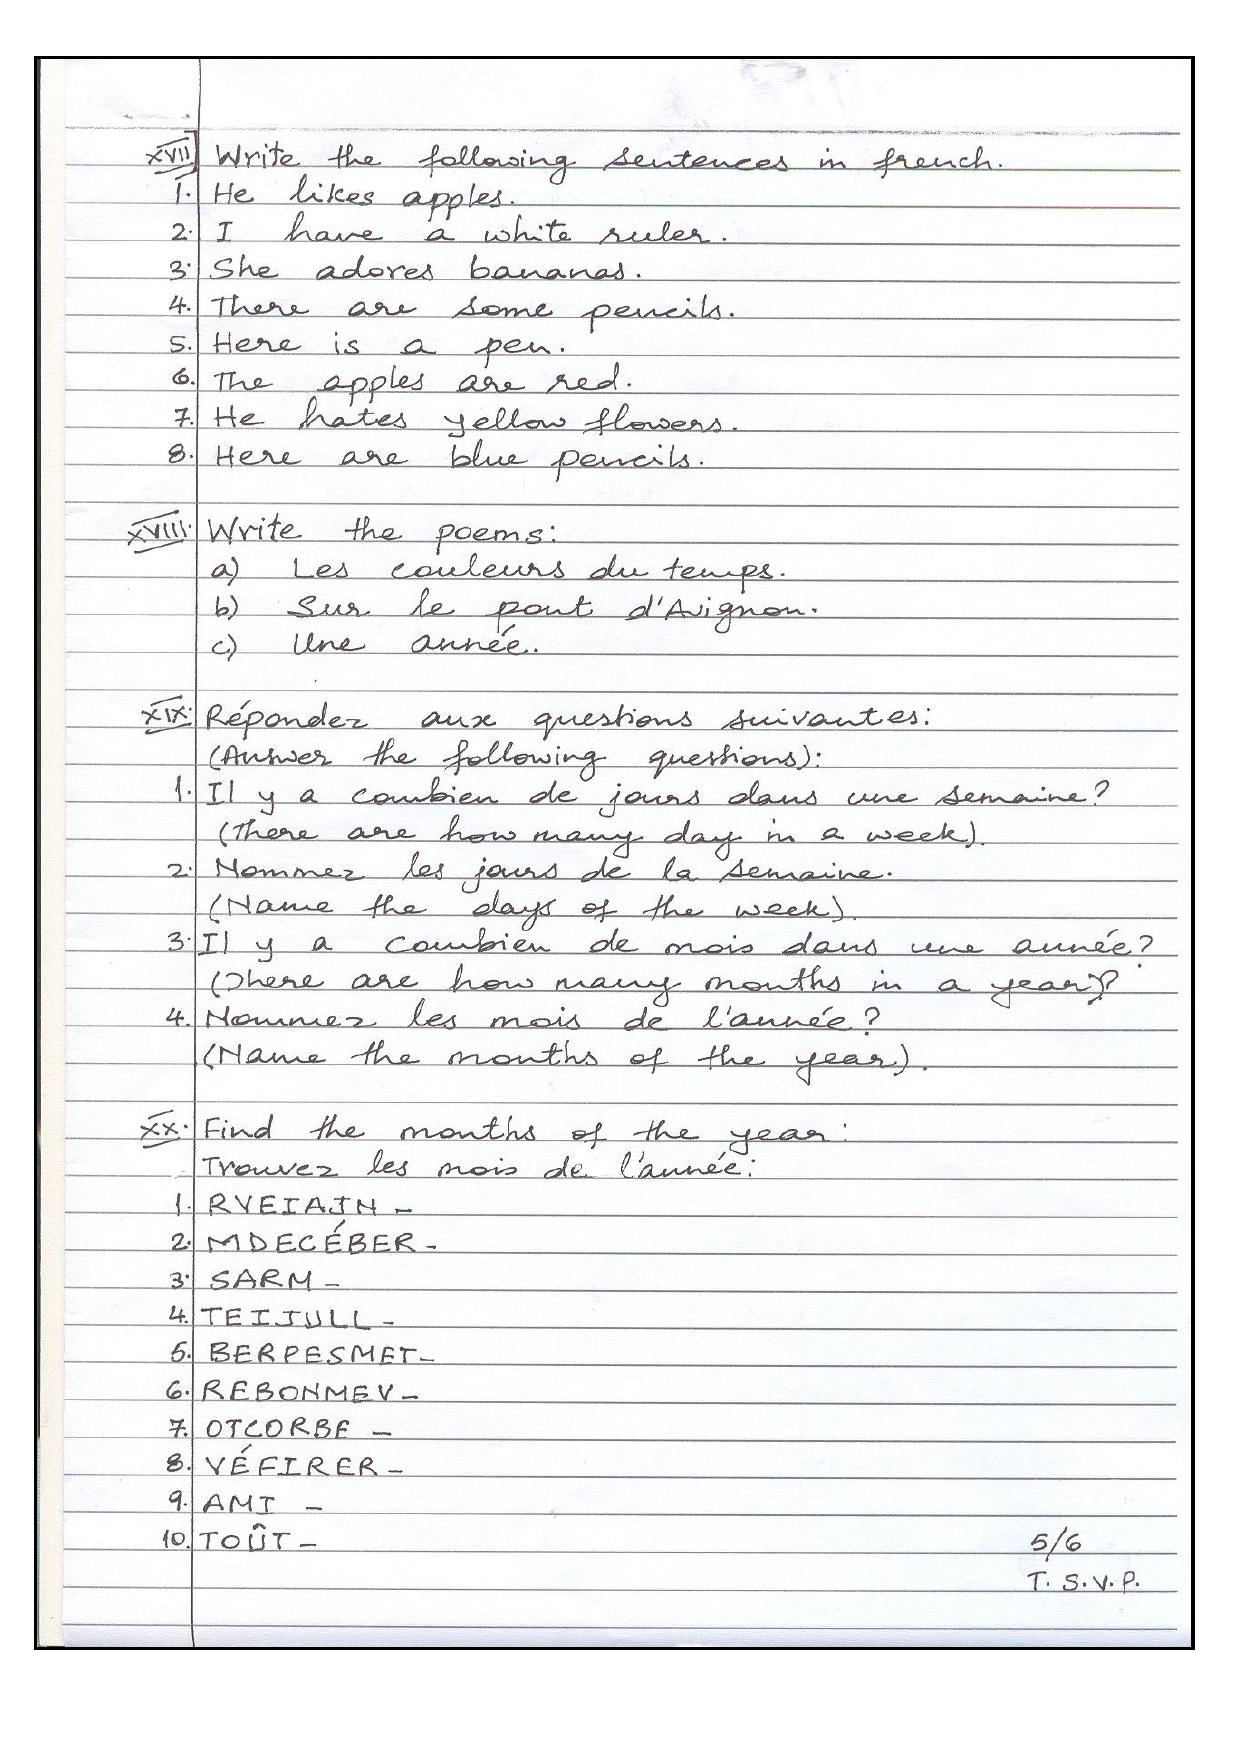 XVII Write the following sentences in french.
1. He likes apples.
2. I have a white ruler.
3. She adores bananas.
4. There are some pencils.
5. Here is a pen.
6. The apples are red.
7. He hates yellow flowers.
8. Here are blue pencils.
XVIII. Write the poems:
a) Les couleurs du temps.
b) Sur le pont d'Avignon.
c) Une année.
XIX. Répondez aux questions suivantes:
(Answer the following questions):
1. Il y a combien de jours dans une semaine?
(There are how many day in a week).
2. Nommez les jours de la semaine.
(Name the days of the week).
3. Il y a combien de mois dans une année?
(There are how many months in a year)?
4. Nommez les mois de l'année?
(Name the months of the year).
XX. Find the months of the year:
Trouvez les mois de l'année:
1. RVEIAJN -
2. MDECÉBER -
3. SARM -
4. TEIJULL -
5. BERPESMET -
6. REBONMEV -
7. OTCORBE -
8. VÉFIRER -
9. AMI -
10. TOÛT -
5/6
T. S.V.P.